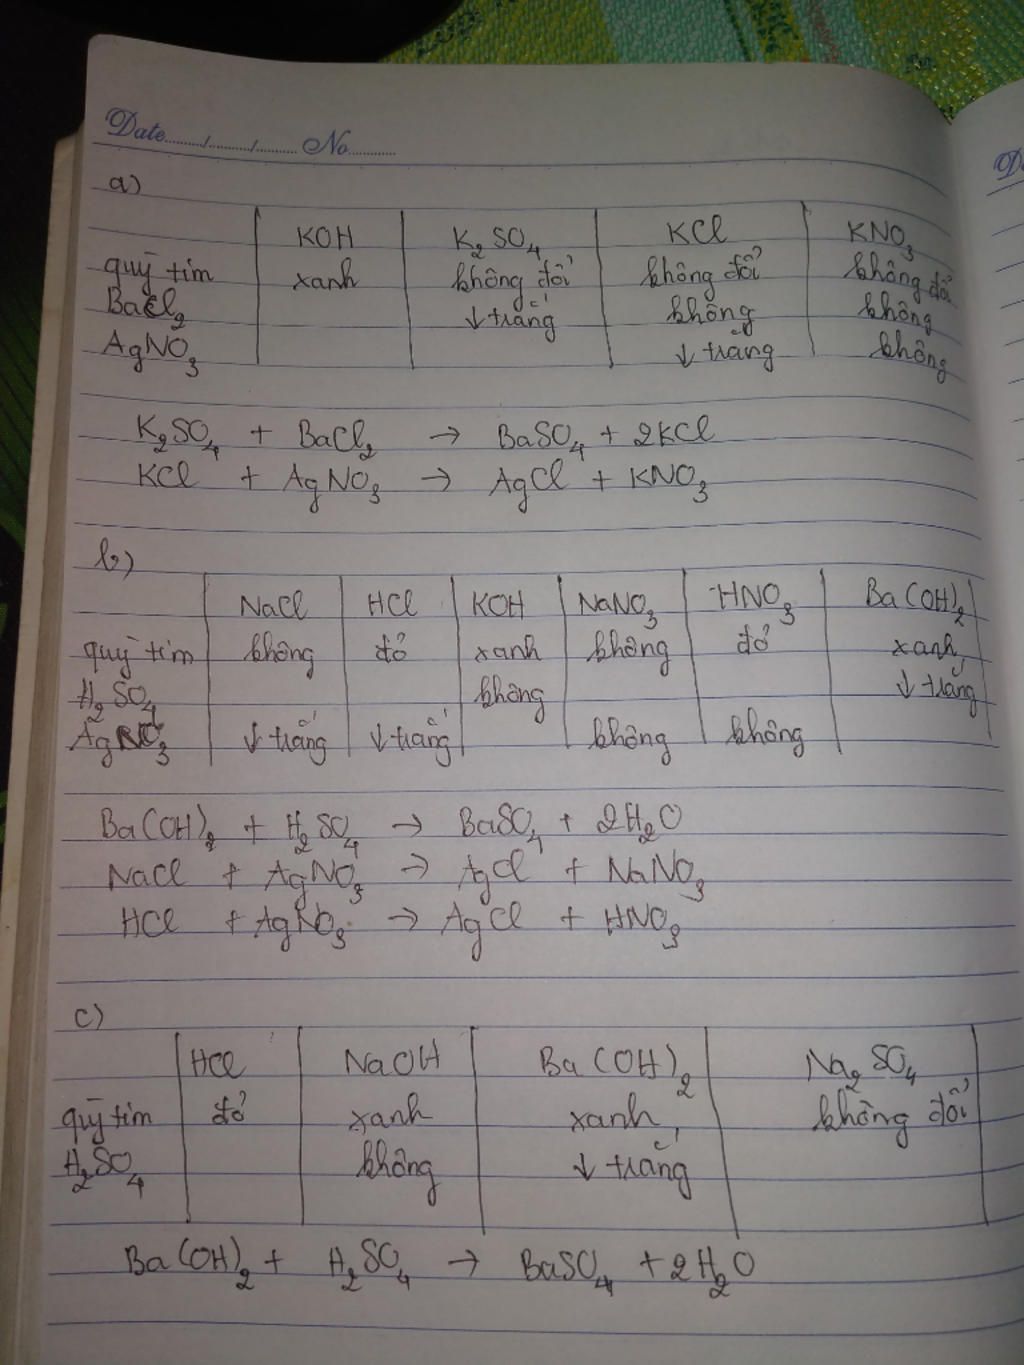 Date......./......./....... No..........
a)
KOH K₂SO₄ KCl KNO₃
quỳ tím xanh không đổi không đổi không đổi
BaCl₂ ↓ trắng không không
AgNO₃ ↓ trắng không
K₂SO₄ + BaCl₂ → BaSO₄ + 2KCl
KCl + AgNO₃ → AgCl + KNO₃
b)
NaCl HCl KOH NaNO₃ HNO₃ Ba(OH)₂
quỳ tím không đỏ xanh không đỏ xanh
H₂SO₄ không ↓ trắng
AgNO₃ ↓ trắng ↓ trắng không không
Ba(OH)₂ + H₂SO₄ → BaSO₄ + 2H₂O
NaCl + AgNO₃ → AgCl + NaNO₃
HCl + AgNO₃ → AgCl + HNO₃
c)
HCl NaOH Ba(OH)₂ Na₂SO₄
quỳ tím đỏ xanh xanh không đổi
H₂SO₄ không ↓ trắng
Ba(OH)₂ + H₂SO₄ → BaSO₄ + 2H₂O